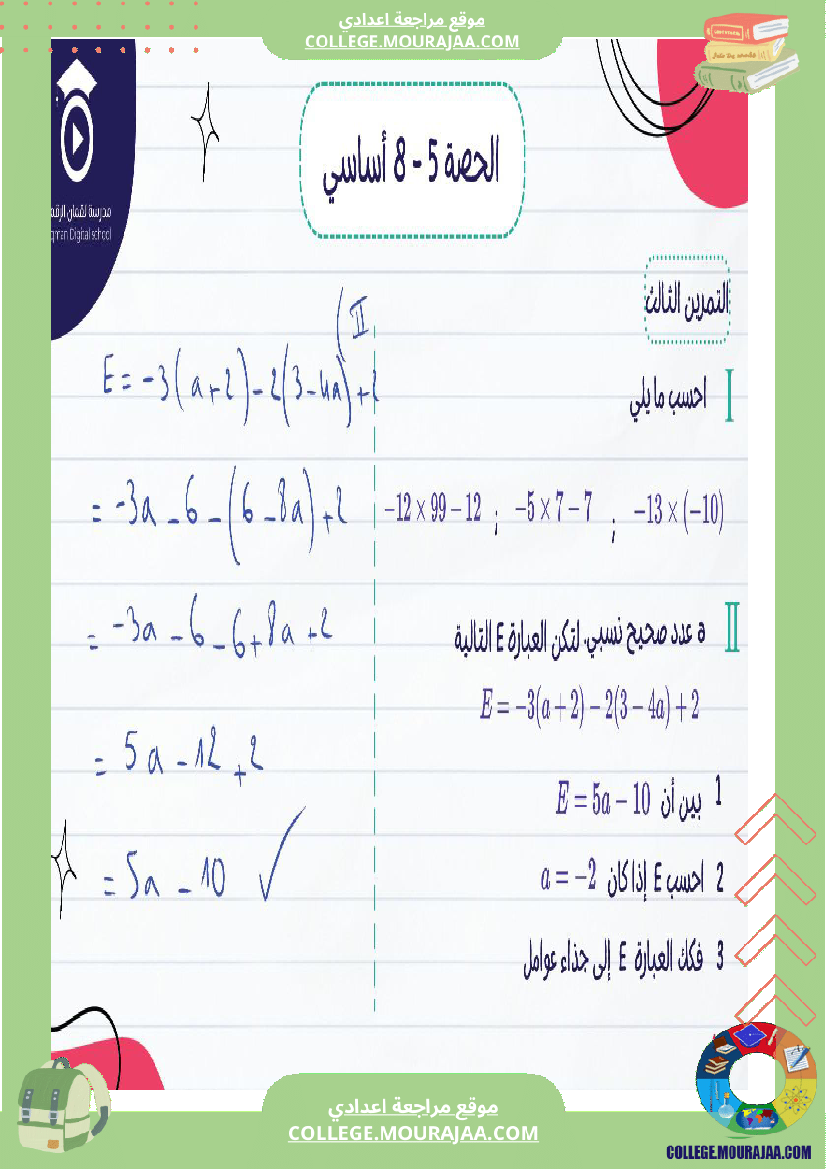 موقع مراجعة اعدادي
COLLEGE.MOURAJAA.COM
مدرسة لقمان الرقم
qman Digital school
الحصة 5 - 8 أساسي
التمرين الثالث
I احسب ما يلي
-13 × (-10) ; -5 × 7 - 7 ; -12 × 99 - 12
II a عدد صحيح نسبي. لتكن العبارة E التالية
E = -3(a + 2) - 2(3 - 4a) + 2
1 بين أن E = 5a - 10
2 احسب E إذا كان a = -2
3 فكك العبارة E إلى جذاء عوامل
II)
E = -3(a+2) - 2(3-4a) + 2
= -3a - 6 - (6 - 8a) + 2
= -3a - 6 - 6 + 8a + 2
= 5a - 12 + 2
= 5a - 10 ✓
موقع مراجعة اعدادي
COLLEGE.MOURAJAA.COM
COLLEGE.MOURAJAA.COM